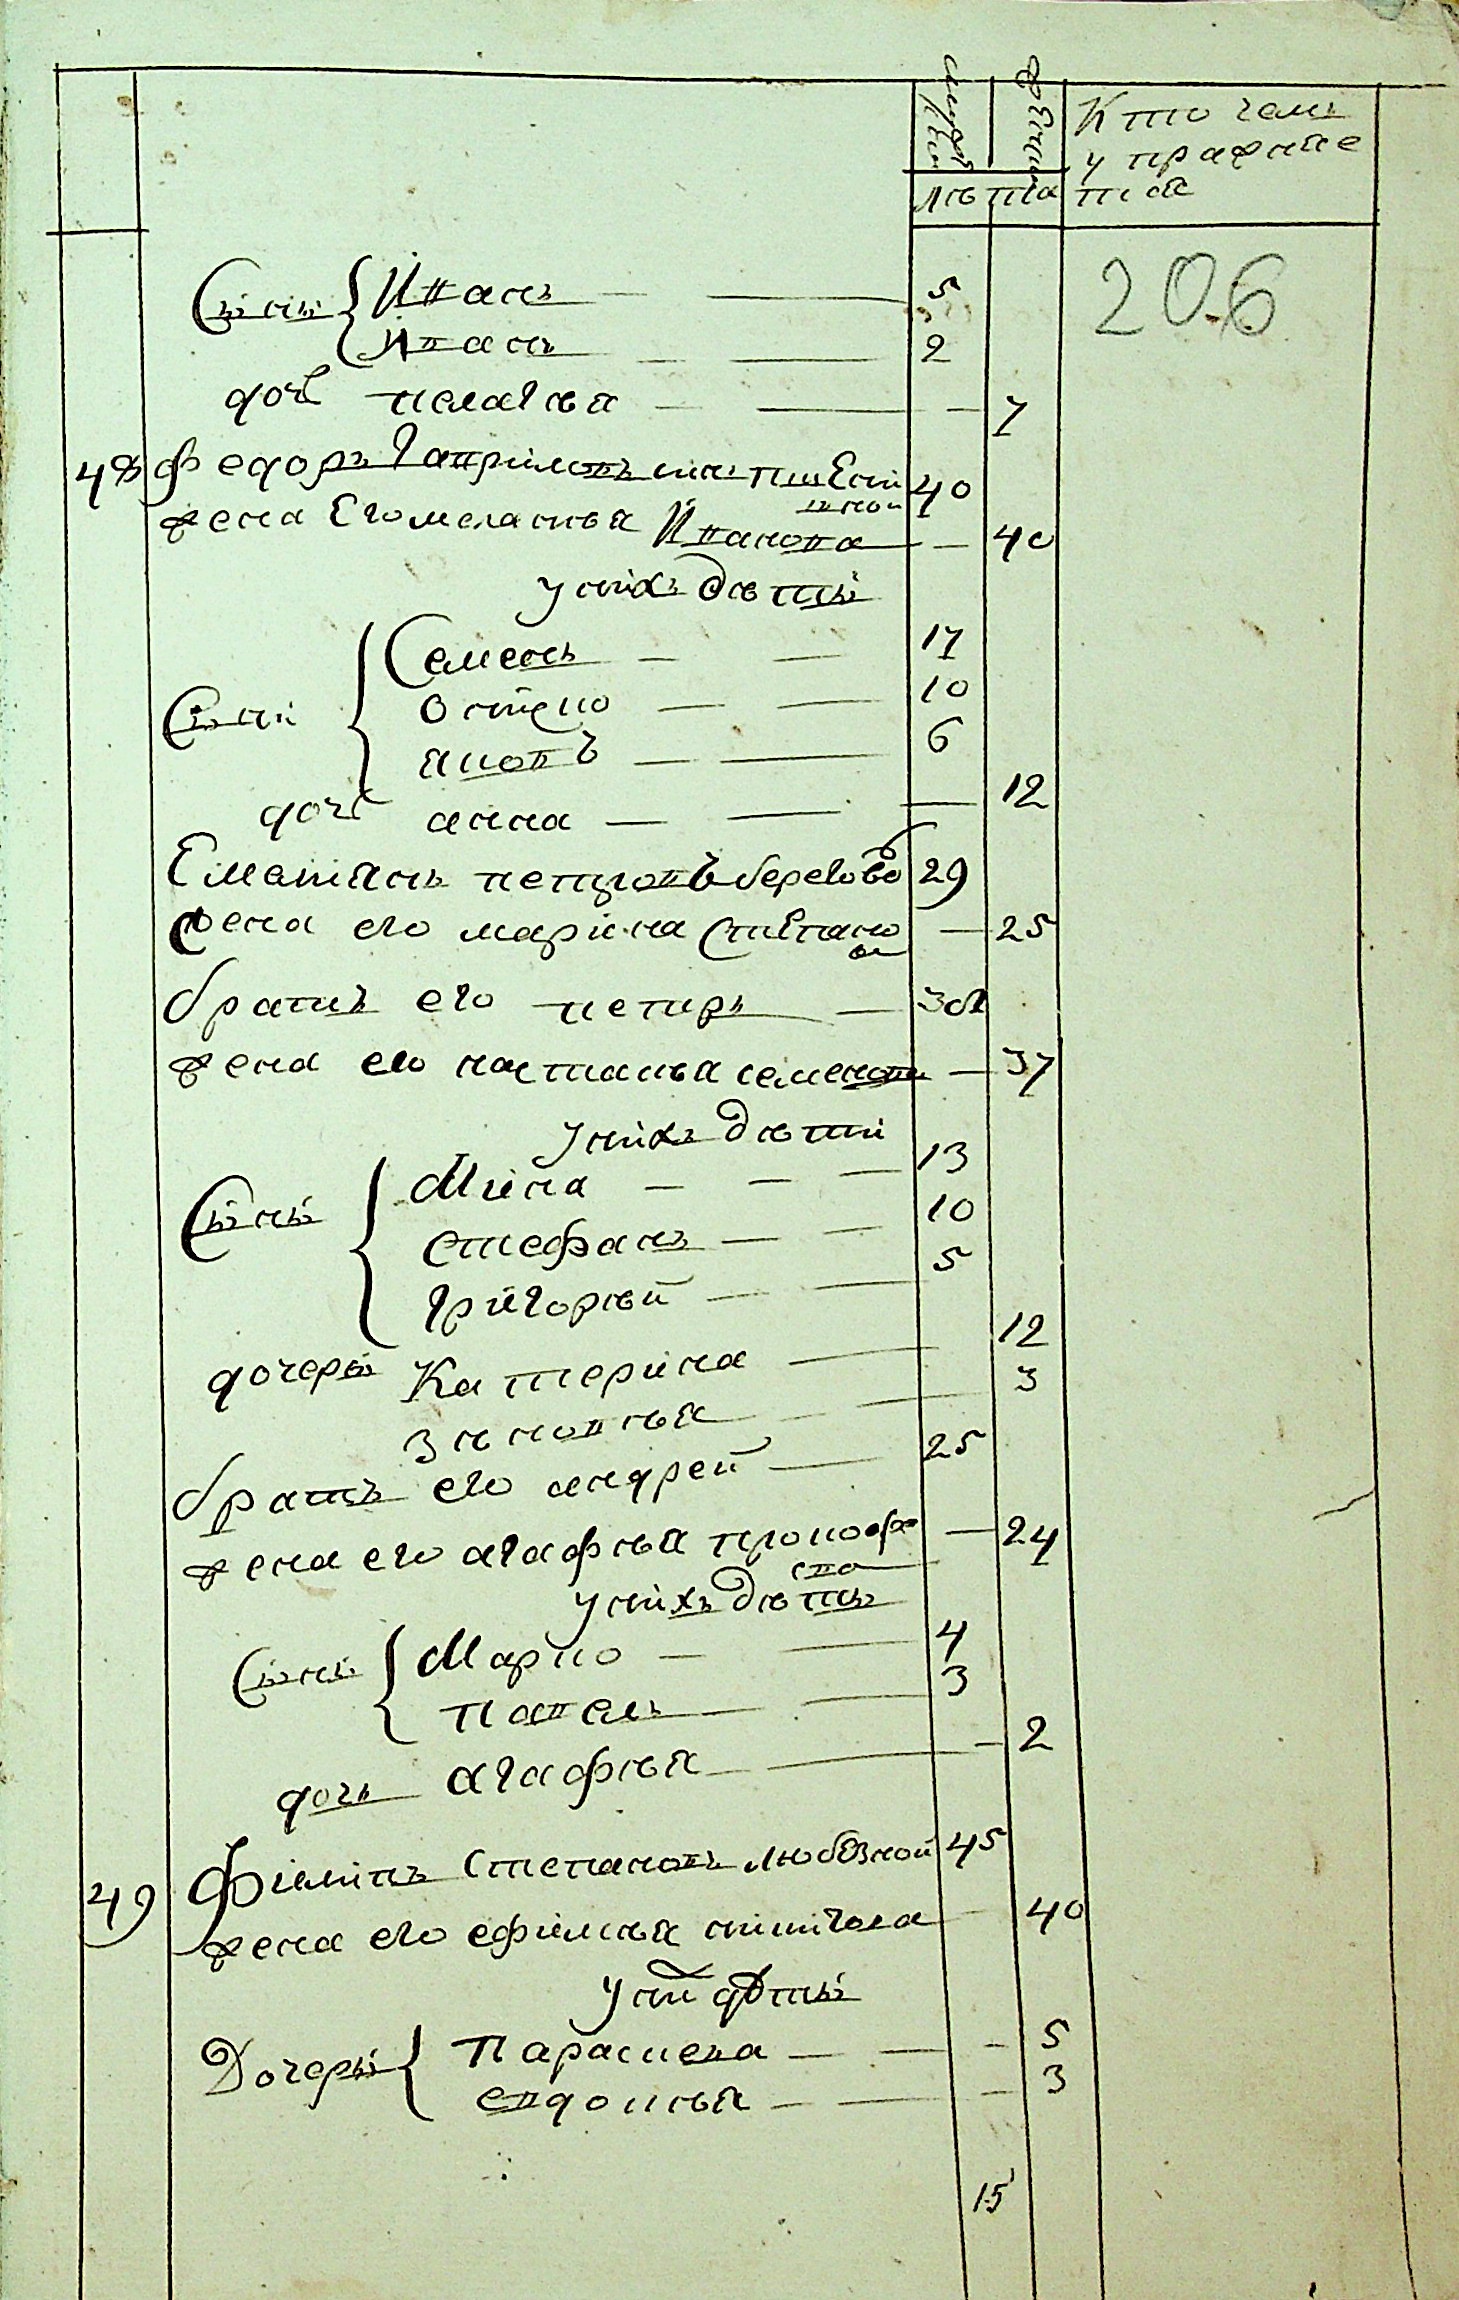 мужескъ женскъ Кто чемъ
упражняе
лѣта тся
206
Сыны Иванъ 5
Иванъ 2
дочь пелагѣя 7
48 Федоръ Гавриловъ 40
жена Его меланья Иванова 40
у нихъ дѣти
Семенъ 17
Сыни
яковъ 6
дочь анна 12
Емелиянъ петровъ береговои 29
жена его марина степанова 25
братъ его петръ
жена его настасья семенова 37
у нихъ дѣти
Мина 13
Сыны
стефанъ 10
григорей 5
дочеры Катерина 12
зѣновья 3
братъ его андрей 25
жена его агафья прокофьева 24
у нихъ дѣти
Сыны Марко 4
павелъ 3
дочь агафья 2
49 Филипъ степановъ любезной 45
жена его ефимья 40
у ни дѣты
Дочеры параскева 5
евдокия 3
15